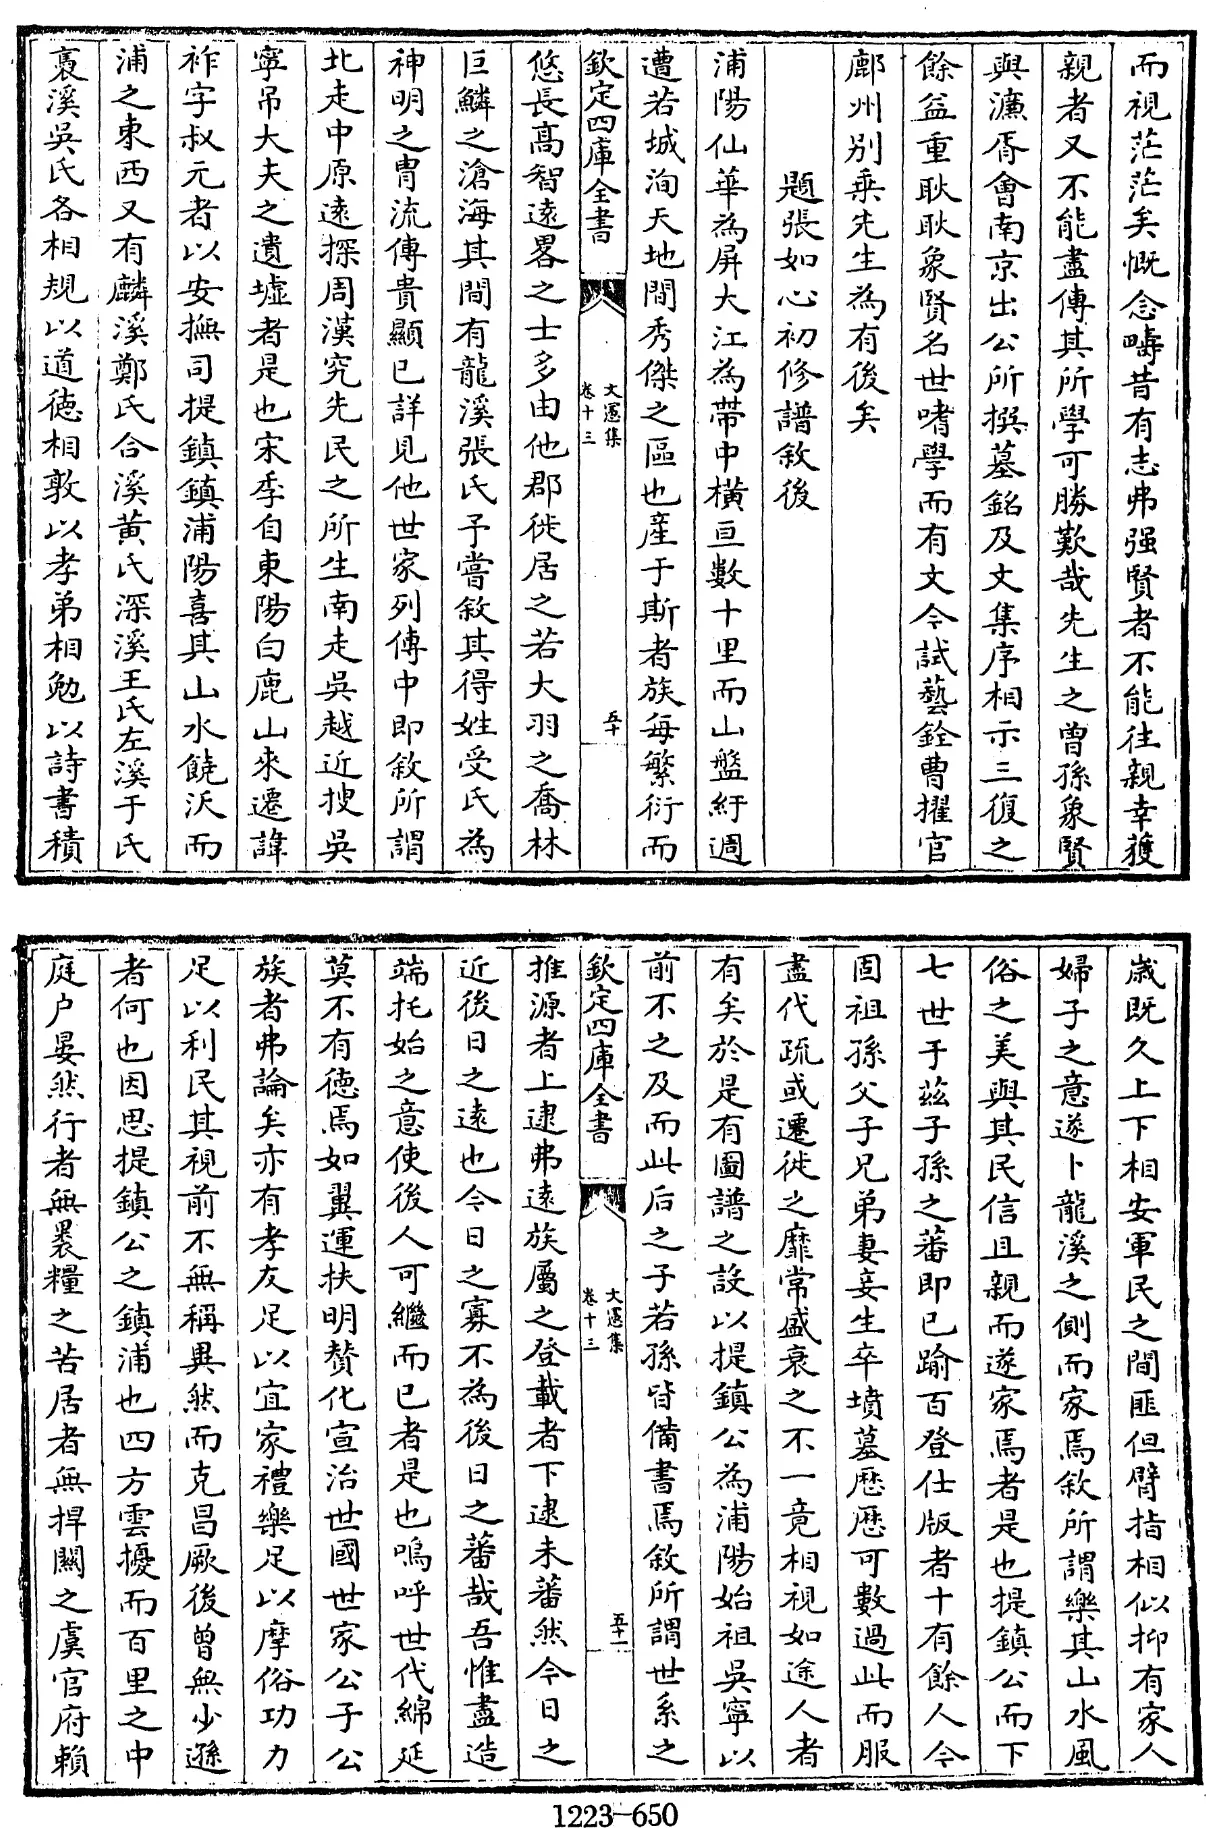 而視茫茫矣慨念疇昔有志弗强賢者不能往親幸獲
親者又不能盡傳其所學可勝歎哉先生之曾孫象賢
與濂胥會南京出公所撰墓銘及文集序相示三復之
餘益重耿耿象賢名世嗜學而有文今試藝銓曹擢官
鄜州别乘先生為有後矣
題張如心初修譜敘後
浦陽仙華為屏大江為帶中橫亘數十里而山盤紆週
遭若城洵天地間秀傑之區也産于斯者族每繁衍而
欽定四庫全書
文憲集
卷十三
五十
悠長高智遠畧之士多由他郡徙居之若大羽之喬林
巨鱗之滄海其間有龍溪張氏予嘗敘其得姓受氏為
神明之胄流傳貴顯已詳見他世家列傳中即敘所謂
北走中原遠探周漢究先民之所生南走吳越近搜吳
寧吊大夫之遺墟者是也宋季自東陽白鹿山來遷諱
祚字叔元者以安撫司提鎮鎮浦陽喜其山水饒沃而
浦之東西又有麟溪鄭氏合溪黃氏深溪王氏左溪于氏
裏溪吳氏各相規以道德相敦以孝弟相勉以詩書積
歲既久上下相安軍民之間匪但臂指相似抑有家人
婦子之意遂卜龍溪之側而家焉敘所謂樂其山水風
俗之美與其民信且親而遂家焉者是也提鎮公而下
七世于茲子孫之蕃即已踰百登仕版者十有餘人今
固祖孫父子兄弟妻妾生卒墳墓歷歷可數過此而服
盡代疏或遷徙之靡常盛衰之不一竟相視如途人者
有矣於是有圖譜之設以提鎮公為浦陽始祖吳寧以
前不之及而此后之子若孫皆備書焉敘所謂世系之
欽定四庫全書
文憲集
卷十三
五十一
推源者上逮弗遠族屬之登載者下逮未蕃然今日之
近後日之遠也今日之寡不為後日之蕃哉吾惟盡造
端托始之意使後人可繼而已者是也嗚呼世代綿延
莫不有德焉如翼運扶明贊化宣治世國世家公子公
族者弗論矣亦有孝友足以宜家禮樂足以摩俗功力
足以利民其視前不無稱異然而克昌厥後曾無少遜
者何也因思提鎮公之鎮浦也四方雲擾而百里之中
庭户晏然行者無裹糧之苦居者無捍闗之虞官府賴
1223-650